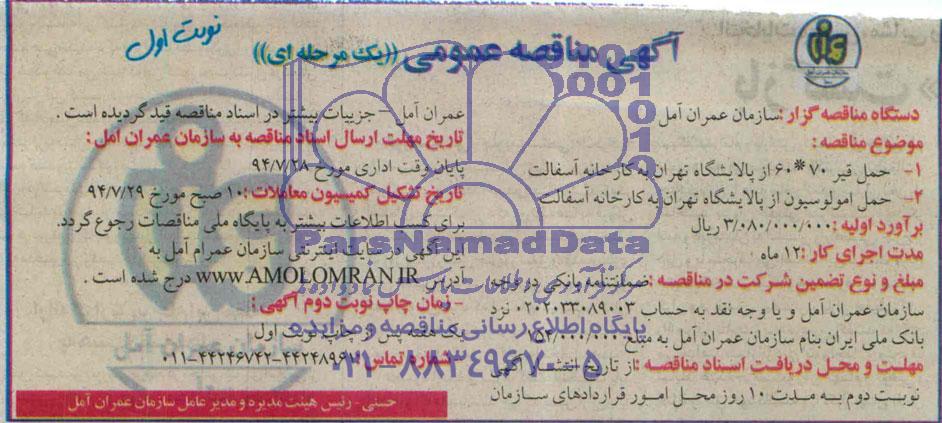 آگهی مناقصه عمومی ((یک مرحله ای))
نوبت اول
دستگاه مناقصه گزار: سازمان عمران آمل
موضوع مناقصه:
۱- حمل قیر ۷۰*۶۰ از پالایشگاه تهران به کارخانه آسفالت
۲- حمل امولوسیون از پالایشگاه تهران به کارخانه آسفالت
برآورد اولیه: ۳/۰۸۰/۰۰۰/۰۰۰ ریال
مدت اجرای کار: ۱۲ ماه
مبلغ و نوع تضمین شرکت در مناقصه: ضمانتنامه بانکی در وجه
سازمان عمران آمل و یا وجه نقد به حساب ۰۲۰۲۰۳۳۰۸۹۰۰۳ نزد
بانک ملی ایران بنام سازمان عمران آمل به مبلغ ۱۵۴/۰۰۰/۰۰۰
مهلت و محل دریافت اسناد مناقصه: از تاریخ انتشار آگهی
نوبت دوم به مدت ۱۰ روز محل امور قراردادهای سازمان
عمران آمل - جزییات بیشتر در اسناد مناقصه قید گردیده است.
تاریخ مهلت ارسال اسناد مناقصه به سازمان عمران آمل:
پایان وقت اداری مورخ ۹۴/۷/۲۸
تاریخ تشکیل کمیسیون معاملات: ۱۰ صبح مورخ ۹۴/۷/۲۹
برای کسب اطلاعات بیشتر به پایگاه ملی مناقصات رجوع گردد.
این آگهی در سایت اینترنتی سازمان عمرام آمل به
آدرس www.AMOLOMRAN.IR درج شده است.
- زمان چاپ نوبت دوم آگهی:
یک هفته پس از چاپ نوبت اول
شماره تماس: ۴۴۲۴۸۹۶۱-۴۴۲۴۶۷۴۲-۰۱۱
حسنی - رئیس هیئت مدیره و مدیر عامل سازمان عمران آمل
ParsNamadData
پایگاه اطلاع رسانی مناقصه و مزایده
۰۲۱-۸۸۳۴۹۶۷۰-۵